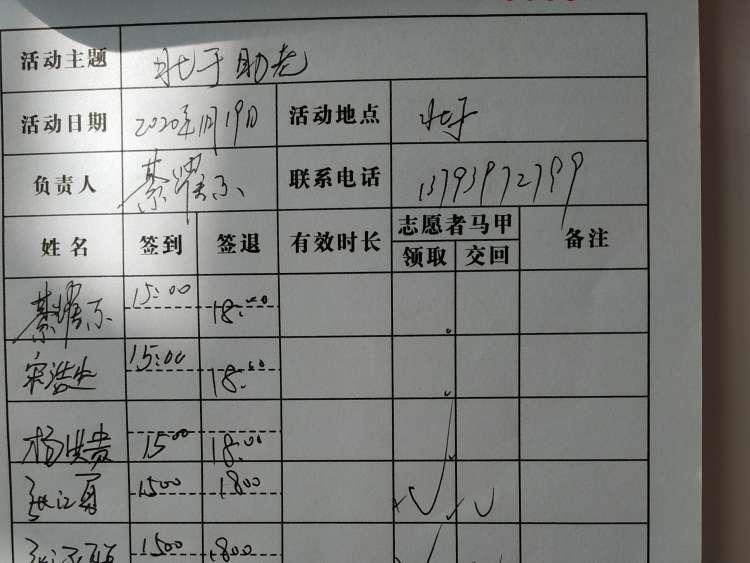 活动主题 北于助老
活动日期 2020年11月19日 活动地点 北于
负责人 綦耀东 联系电话 13793972799
姓名 签到 签退 有效时长 志愿者马甲 备注
领取 交回
綦耀东 15:00 18:00
15:00 18:00
杨洪贵 1500 18:00
张江 1500 1800
1500 1800